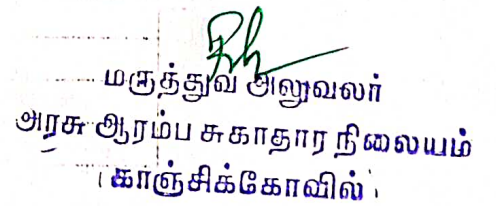 மருத்துவ அலுவலர்
அரசு ஆரம்ப சுகாதார நிலையம்
காஞ்சிக்கோவில்